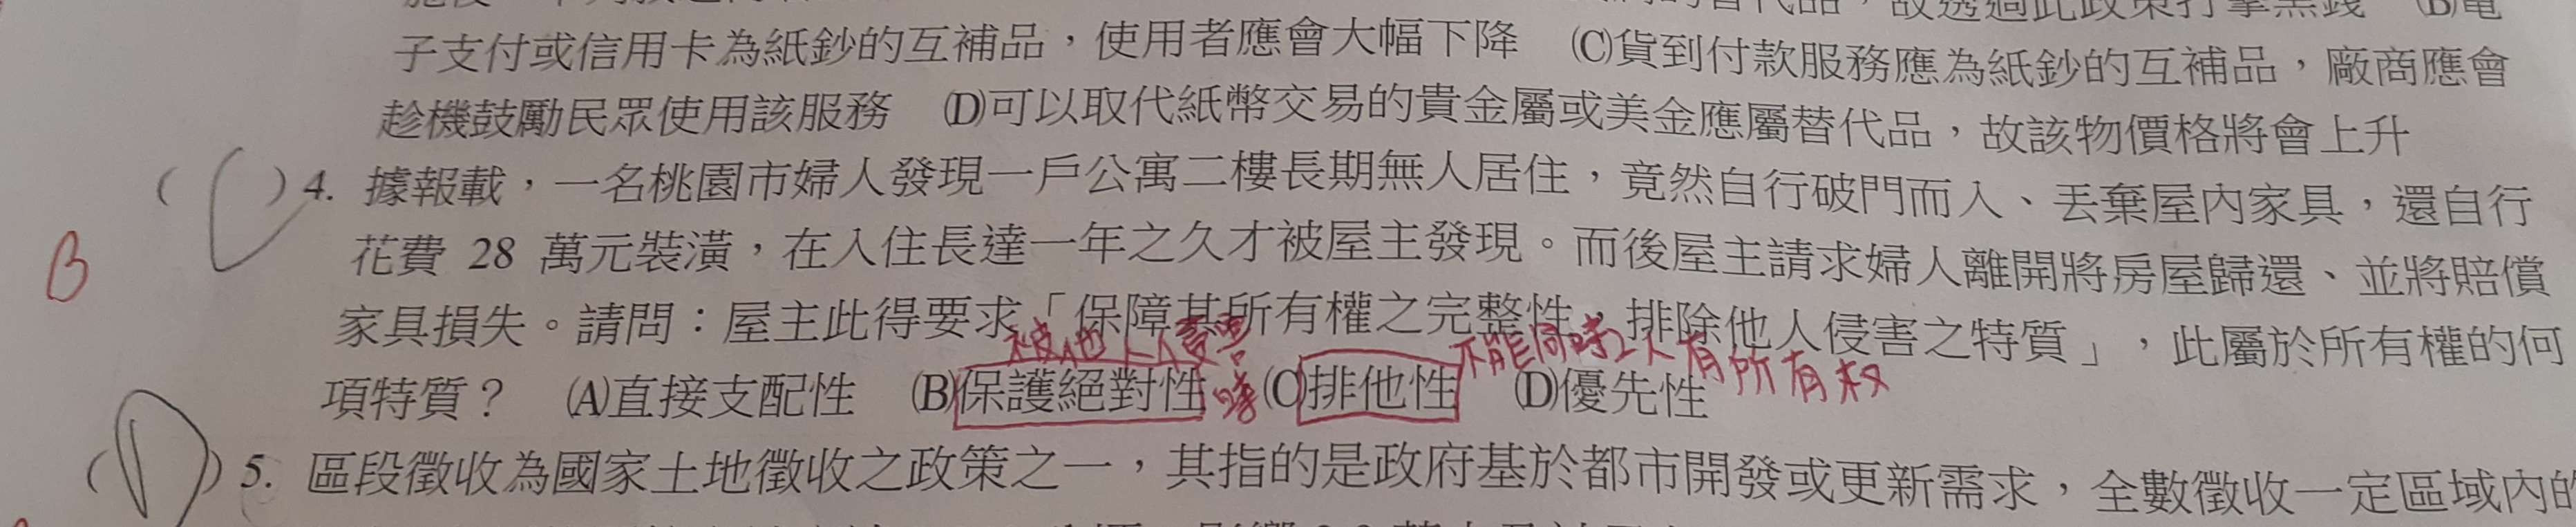 子支付或信用卡為紙鈔的互補品,使用者應會大幅下降 (C)貨到付款服務應為紙鈔的互補品,廠商應會
趁機鼓勵民眾使用該服務 (D)可以取代紙幣交易的貴金屬或美金應屬替代品,故該物價格將會上升
(C)4. 據報載,一名桃園市婦人發現一戶公寓二樓長期無人居住,竟然自行破門而入、丟棄屋內家具,還自行
B
花費 28 萬元裝潢,在入住長達一年之久才被屋主發現。而後屋主請求婦人離開將房屋歸還、並將賠償
家具損失。請問:屋主此得要求「保障其所有權之完整性,排除他人侵害之特質」,此屬於所有權的何
被他人侵害時
不能同時2人有所有权
項特質? (A)直接支配性 (B)保護絕對性 (C)排他性 (D)優先性
(D)5. 區段徵收為國家土地徵收之政策之一,其指的是政府基於都市開發或更新需求,全數徵收一定區域內的